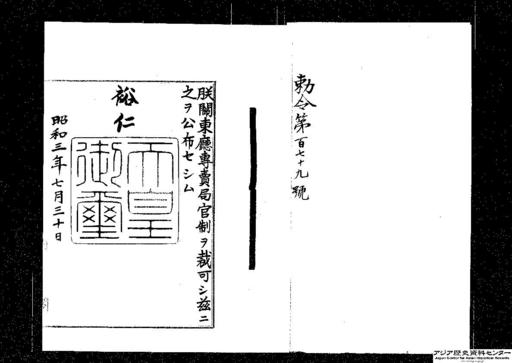 勅令第百七十九號
朕關東廳專賣局官制ヲ裁可シ茲ニ
之ヲ公布セシム
裕仁
天皇
御璽
昭和三年七月三十日
アジア歴史資料センター
Japan Center for Asian Historical Records